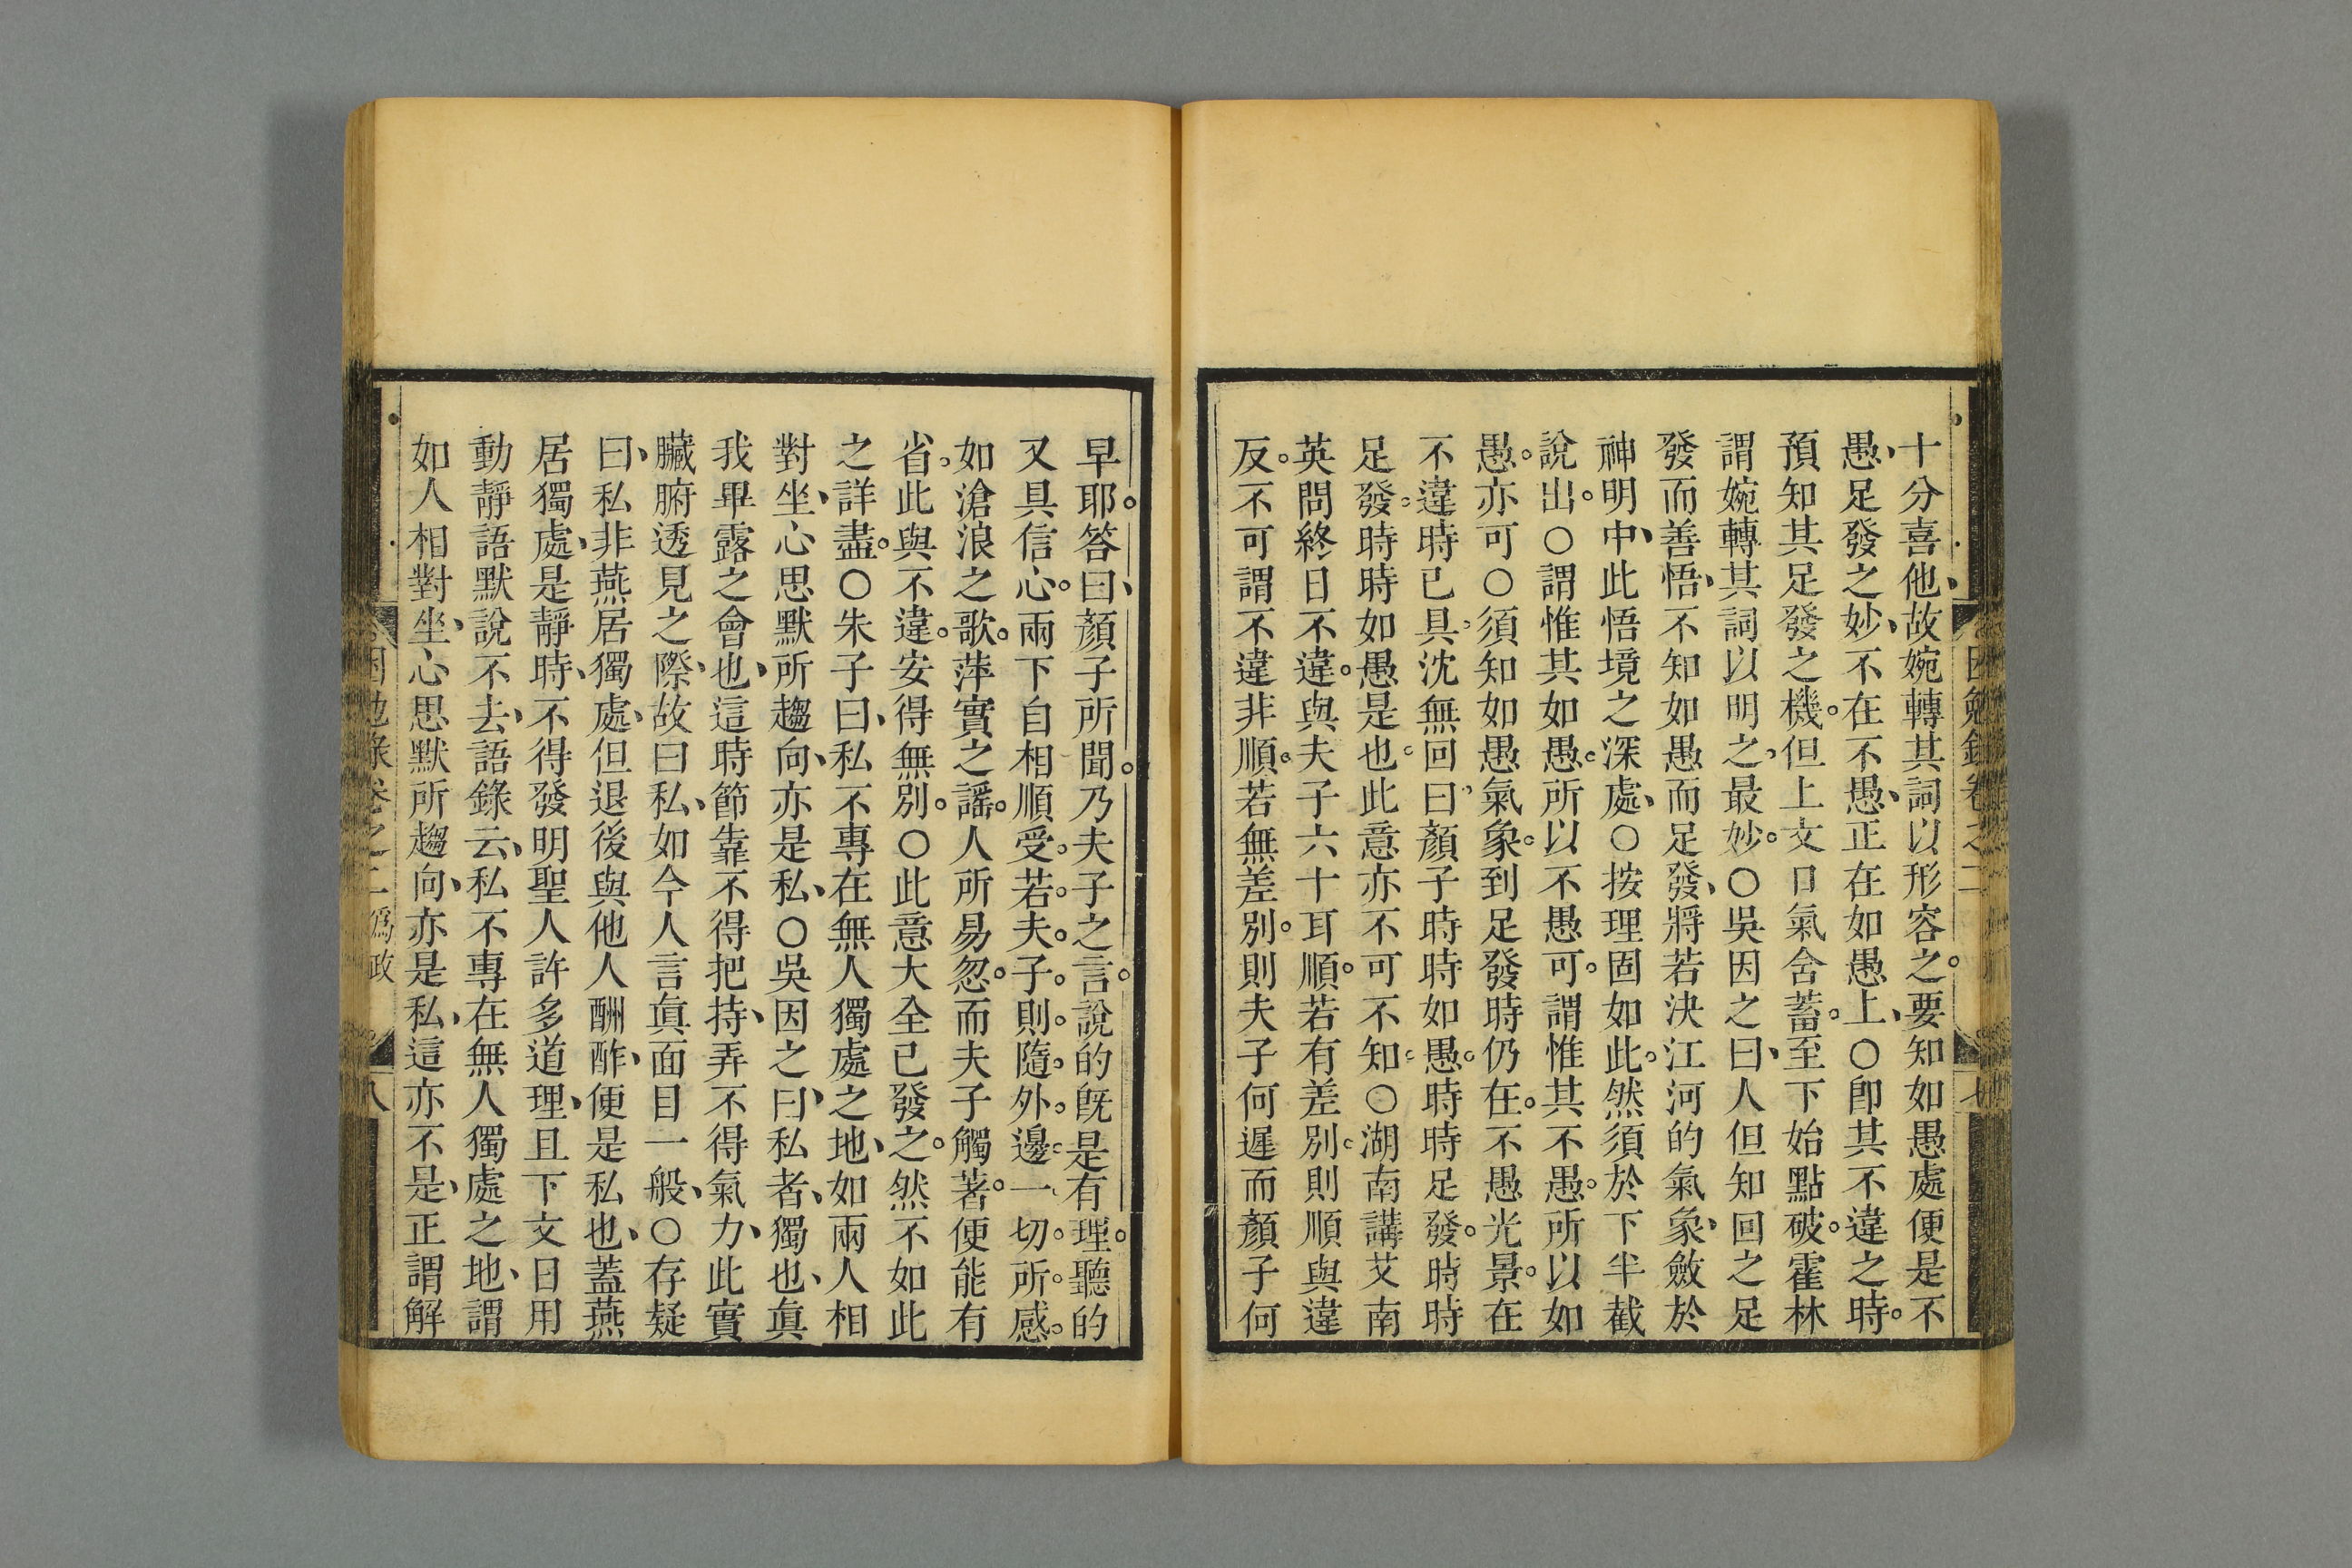 十分喜他、故婉轉其詞以形容之。要知如愚處便是不
愚、足發之妙、不在不愚、正在如愚上、○卽其不違之時。
預知其足發之機。但上文口氣含蓄。至下始點破。霍林
謂婉轉其詞以明之、最妙。○吳因之曰、人但知回之足
發而善悟、不知如愚而足發、將若決江河的氣象、斂於
神明中、此悟境之深處、○按理固如此。然須於下半截
說出。○謂惟其如愚。所以不愚可。謂惟其不愚。所以如
愚。亦可○須知如愚氣象。到足發時仍在。不愚光景。在
不違時已具、沈無回曰、顏子時時如愚。時時足發。時時
足發。時時如愚是也。此意亦不可不知。○湖南講艾南
英問終日不違。與夫子六十耳順。若有差別。則順與違
反。不可謂不違非順。若無差別。則夫子何遲而顏子何
困勉錄卷之二
七
早耶。答曰、顏子所聞。乃夫子之言。說的旣是有理。聽的
又具信心。兩下自相順受。若夫子。則隨外邊一切所感。
如滄浪之歌。萍實之謠。人所易忽。而夫子觸著。便能有
省。此與不違。安得無別。○此意大全已發之。然不如此
之詳盡。○朱子曰、私不專在無人獨處之地、如兩人相
對坐、心思默所趨向、亦是私、○吳因之曰、私者、獨也、眞
我畢露之會也、這時節靠不得把持、弄不得氣力、此實
臟腑透見之際、故曰私、如今人言眞面目一般、○存疑
曰、私非燕居獨處、但退後與他人酬酢、便是私也、蓋燕
居獨處、是靜時、不得發明聖人許多道理、且下文日用
動靜語默說不去、語錄云、私不專在無人獨處之地、謂
如人相對坐、心思默所趨向、亦是私、這亦不是、正謂解
困勉錄卷之二 爲政
八